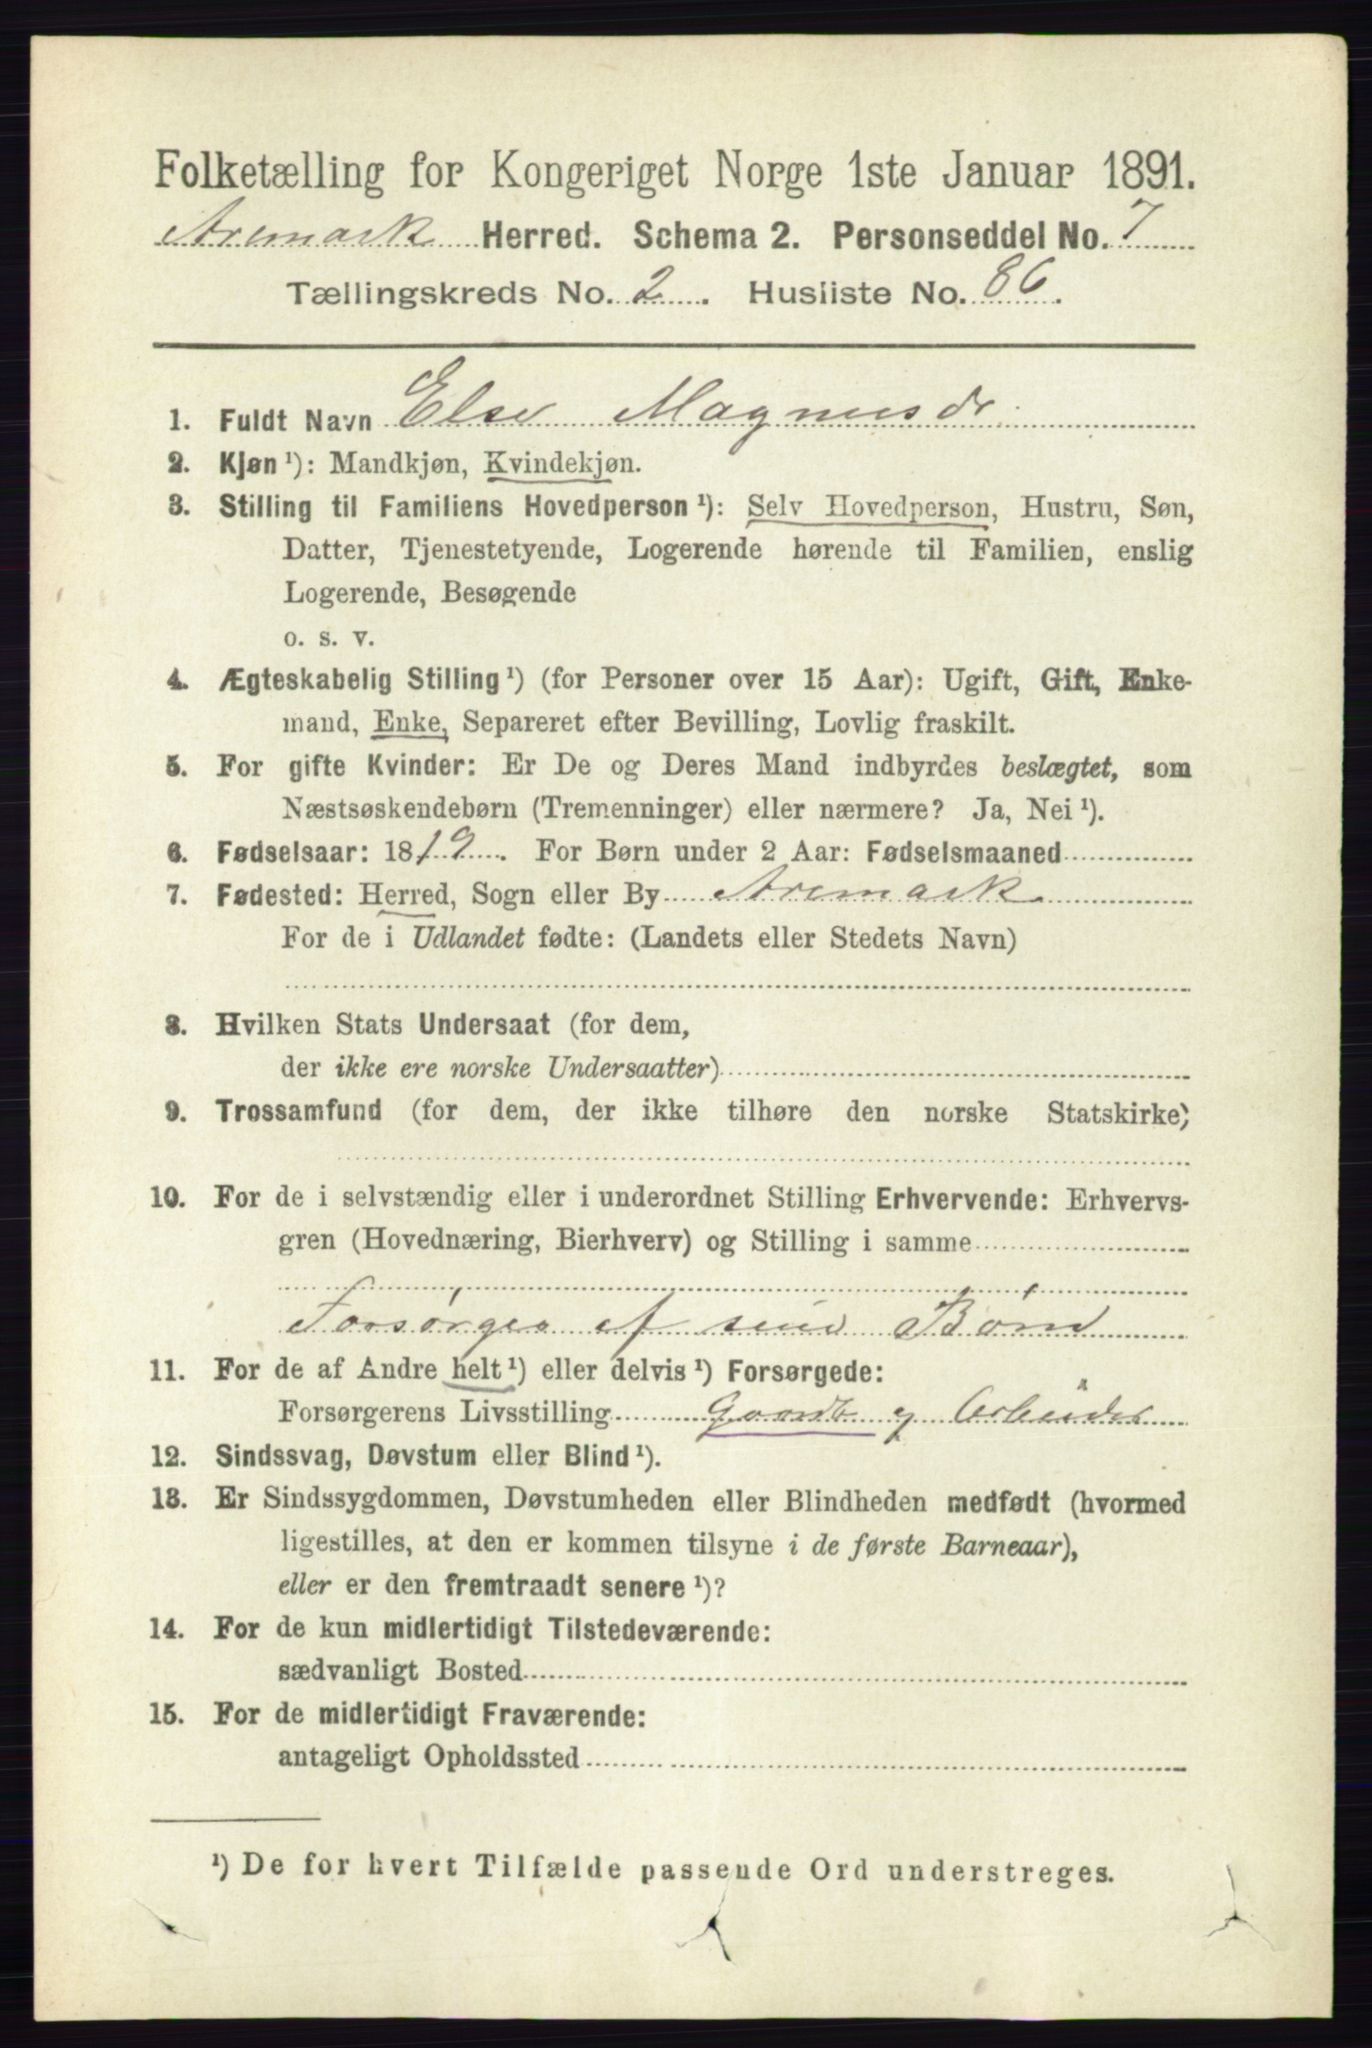 Folketælling for Kongeriget Norge 1ste Januar 1891.
Aremark Herred. Schema 2. Personseddel No. 7
Tællingskreds No. 2. Husliste No. 86.
1. Fuldt Navn Else Magnusdr.
2. Kjøn¹): Mandkjøn, Kvindekjøn.
3. Stilling til Familiens Hovedperson¹): Selv Hovedperson, Hustru, Søn,
Datter, Tjenestetyende, Logerende hørende til Familien, enslig
Logerende, Besøgende
o. s. v.
4. Ægteskabelig Stilling¹) (for Personer over 15 Aar): Ugift, Gift, Enke-
mand, Enke, Separeret efter Bevilling, Lovlig fraskilt.
5. For gifte Kvinder: Er De og Deres Mand indbyrdes beslægtet, som
Næstsøskendebørn (Tremenninger) eller nærmere? Ja, Nei¹).
6. Fødselsaar: 1819. For Børn under 2 Aar: Fødselsmaaned
7. Fødested: Herred, Sogn eller By Aremark
For de i Udlandet fødte: (Landets eller Stedets Navn)
8. Hvilken Stats Undersaat (for dem,
der ikke ere norske Undersaatter)
9. Trossamfund (for dem, der ikke tilhøre den norske Statskirke)
10. For de i selvstændig eller i underordnet Stilling Erhvervende: Erhvervs-
gren (Hovednæring, Bierhverv) og Stilling i samme
Forsørges af sine Børn
11. For de af Andre helt¹) eller delvis¹) Forsørgede:
Forsørgerens Livsstilling Gaardb og Arbeider
12. Sindssvag, Døvstum eller Blind¹).
13. Er Sindssygdommen, Døvstumheden eller Blindheden medfødt (hvormed
ligestilles, at den er kommen tilsyne i de første Barneaar),
eller er den fremtraadt senere¹)?
14. For de kun midlertidigt Tilstedeværende:
sædvanligt Bosted
15. For de midlertidigt Fraværende:
antageligt Opholdssted
¹) De for hvert Tilfælde passende Ord understreges.